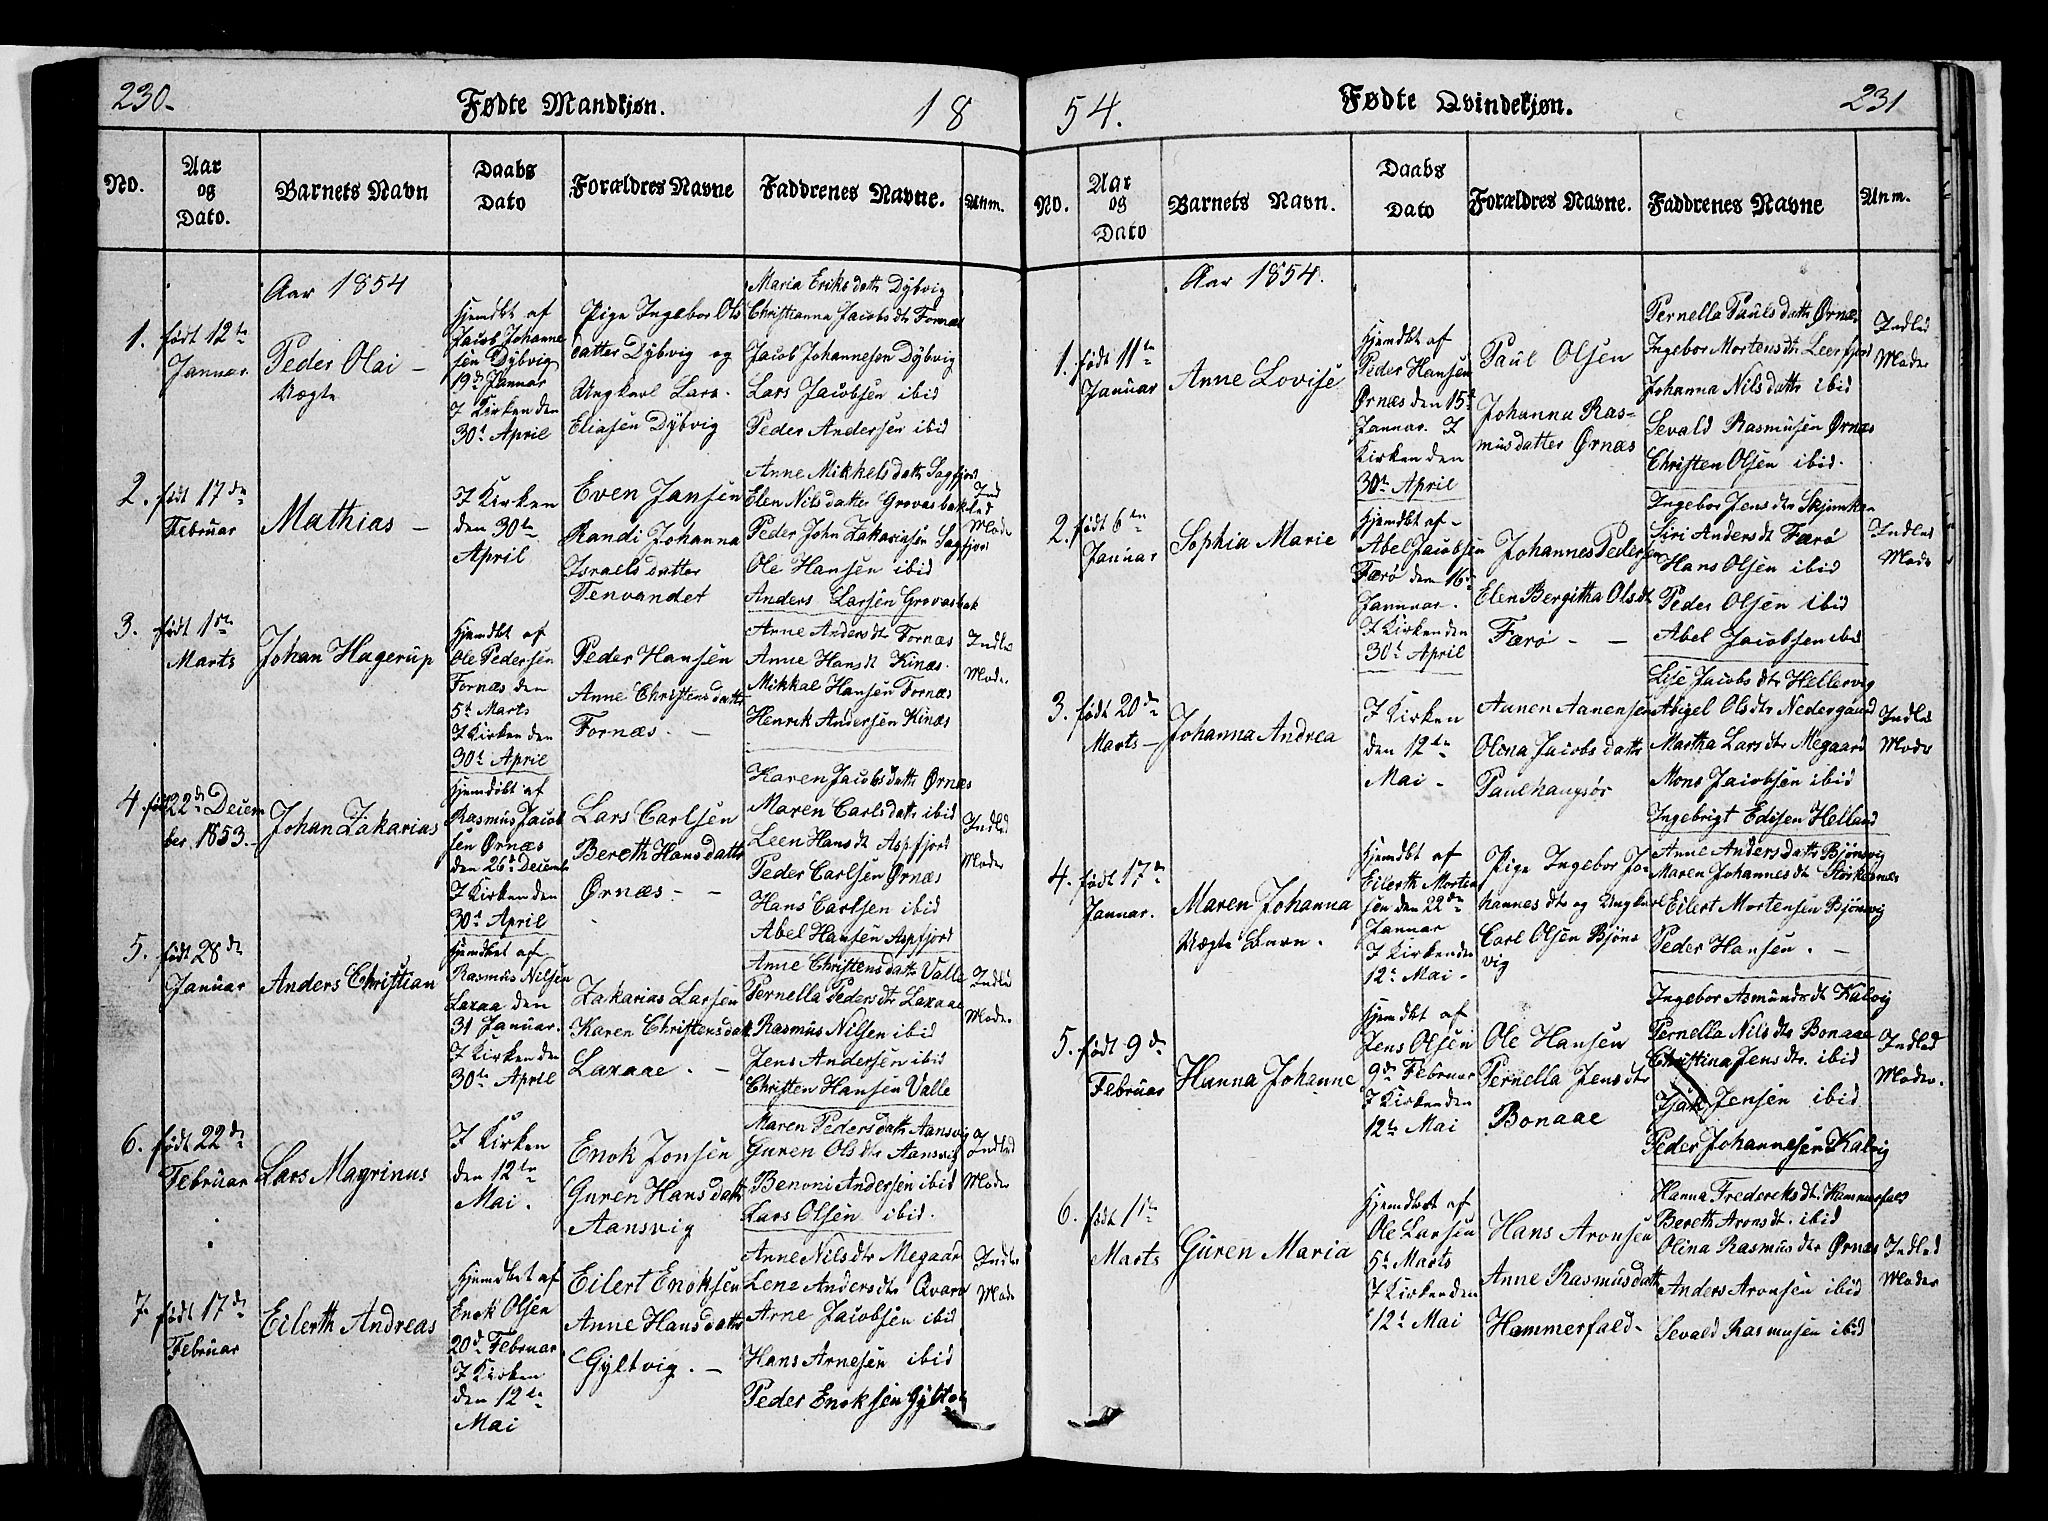 230.
Fødte Mandkjøn.
18
No.
Aar og Dato.
Barnets Navn
Daabs Dato
Forældres Navne
Faddrenes Navne.
Anm.
Aar 1854
1.
født 12te
Januar.
Peder Olai –
Uægte
Hjemdbt af
Jacob Johanne
sen Dybvig
19de Januar
I Kirken den
30t April
Pige Ingebor Ols
datter Dybvig og
Ungkarl Lars
Eliasen Dybvig
Maria Eriksdattr Dybvig
Christianna Jacobsdtr Fornæs
Jacob Johannesen Dybvig
Lars Jacobsen ibid
Peder Andersen ibid
2.
født 17de
Februar
Mathias –
I Kirken
den 30te
April
Even Jansen
Randi Johanna
Israelsdatter
Tenvandet
Anne Mikkelsdattr Sagfjord
Elen Nilsdatter Grovasbak
Peder John Zakariasen Sagfjord
Ole Hansen ibid
Anders Larsen Grovasbak
Ind
led
Mode
3.
født 1ste
Marts
Johan Hagerup
Hjemdbt af
Ole Pedersen
Fornæs den
5t Marts
I Kirken den
30t April
Peder Hansen
Anne Christensdattr
Fornæs. –
Anne Andersdtr Fornæs
Anne Hansdt Kinæs.
Mikkal Hansen Fornæs
Henrik Andersen Kinæs
Indled
Moder
4.
født 22de Decem
ber. 1853.
Johan Zakarias
Hjemdøbt af
Rasmus Jacob
sen Ørnæs
den 26de Decemb
I Kirken den
30t April
Lars Carlsen
Bereth Hansdattr
Ørnæs – –
Karen Jacobsdattr Ørnæs
Maren Carlsdattr ibid
Leen Hansdt Aspfjord
Peder Carlsen Ørnæs
Hans Carlsen ibid
Abel Hansen Aspfjord
Indled
Moder
5.
født 28de
Januar
Anders Christian
Hjemdbet af
Rasmus Nilsen
Laxaa den
31 Januar.
I Kirken den
30te April
Zakarias Larsen
Karen Christensdatt
Laxaae. –
Anne Christensdattr Valle
Pernella Pedersdtr Laxaae
Rasmus Nilsen ibid
Jens Andersen ibid
Christen Hansen Valle
Indled
Moder
6.
født 22de
Februar
Lars Magrinus
I Kirken
den 12te
Mai.
Enok Jonsen
Guren Hansdattr
Aansvig
Maren Pedersdattr Aansvig
Guren Olsdtr Aansvig
Benoni Andersen ibid
Lars Olsen ibid.
Indled
Moder
7.
født 17de
Februar
Eilerth Andreas
Hjemdbet af
Enok Olsen
20de Februar
I Kirken
den 12te
Mai
Eilert Enoksen
Anne Hansdattr
Gyltvig. –
Anne Nilsdtr Megaar
Lene Andersdtr Qvarv
Arne Jacobsen ibid
Hans Arnesen ibid
Peder Enoksen Gyltv
Indled
Mode
54.
Fødte Qvindekjøn.
231
No.
Aar og Dato
Barnets Navn.
Daabs Dato
Forældres Navne.
Faddrenes Navne
Anm.
Aar 1854.
1.
født 11te
Januar
Anne Lovise
Hjemdbt af
Peder Hansen
Ørnæs den 15t
Januar. I
Kirken den
30te April
Paul Olsen
Johanna Ras-
musdatter Ørnæs
Pernella Paulsdattr Ørnæs
Ingebor Mortensdtr Leerfjord
Johanna Nilsdattr ibid
Sevald Rasmusen Ørnæs
Christen Olsen ibid.
Indled
Moder
2.
født 6te
Januar
Sophia Marie
Hjemdbt af
Abel Jacobsen
Færø den 16de
Januar.
I Kirken den
30t April
Johannes Pedersen
Elen Bergitha Olsdt
Færø – –
Ingebor Jensdtr
Siri Andersdt Færø
Hans Olsen ibid
Peder Olsen ibid
Abel Jacobsen ibid
Indled
Mode
3.
født 20de
Marts –
Johanna Andrea
I Kirken
den 12te
Mai –
Aanen Aanensen
Olena Jacobsdattr
Paulhaugsør
Lise Jacobsdtr Hellervig
Abigel Olsdtr Nedergaard
Martha Larsdtr Megaard
Mons Jacobsen ibid
Ingebrigt Edisen Helland
Indled
Mode
4.
født 17de
Januar.
Maren Johanna
Uægte Barn.
Hjemdbt af
Eilerth Morten
sen den 22de
Januar
I Kirken den
12te Mai –
Pige Ingebor Jo
hannesdtr og Ungkarl
Carl Olsen Bjøns
vig
Anne Andersdattr Bjønsvig
Maren Johannesdt Storkesnæs
Eilert Mortensen Bjønsvig
Peder Hansen. –
5.
født 9de
Februar
Hanna Johanne
Hjemdbt af
Jens Olsen
9de Februar
I Kirken den
12te Mai
Ole Hansen
Pernella Jensdtr
Bonaae
Ingebor Asmundsdt Kalvig
Pernella Nilsdtr Bonaae
Christina Jensdtr. ibid
Jensen ibid
Peder Johannesen Kalvig
Indled
Moder.
6.
født 1ste
Marts
Guren Maria
Hjemdbet af
Ole Larsen
5t Marts
I Kirken den
12t Mai
Hans Aronsen
Anne Rasmusdattr
Hammerfald –
Hanna Frederiksdt. Hammerfald
Bereth Aronsdt. ibid
Olina Rasmusdtr Ørnæs
Anders Aronsen ibid
Sevald Rasmusen ibid
Indled
Moder